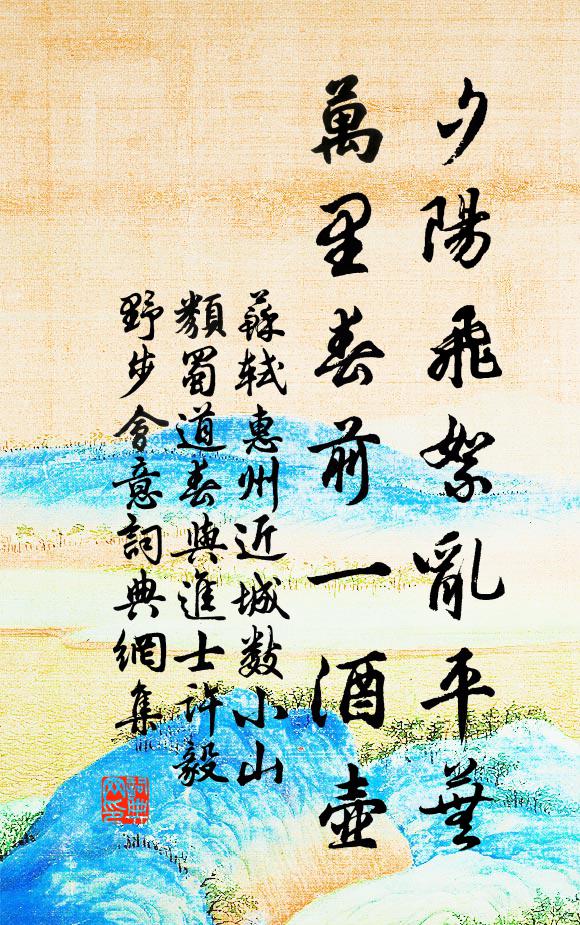 夕陽飛絮亂平蕪
萬里春前一酒壺
蘇軾惠州近城數小山
類蜀道春與進士許毅
野步會意詞典網集